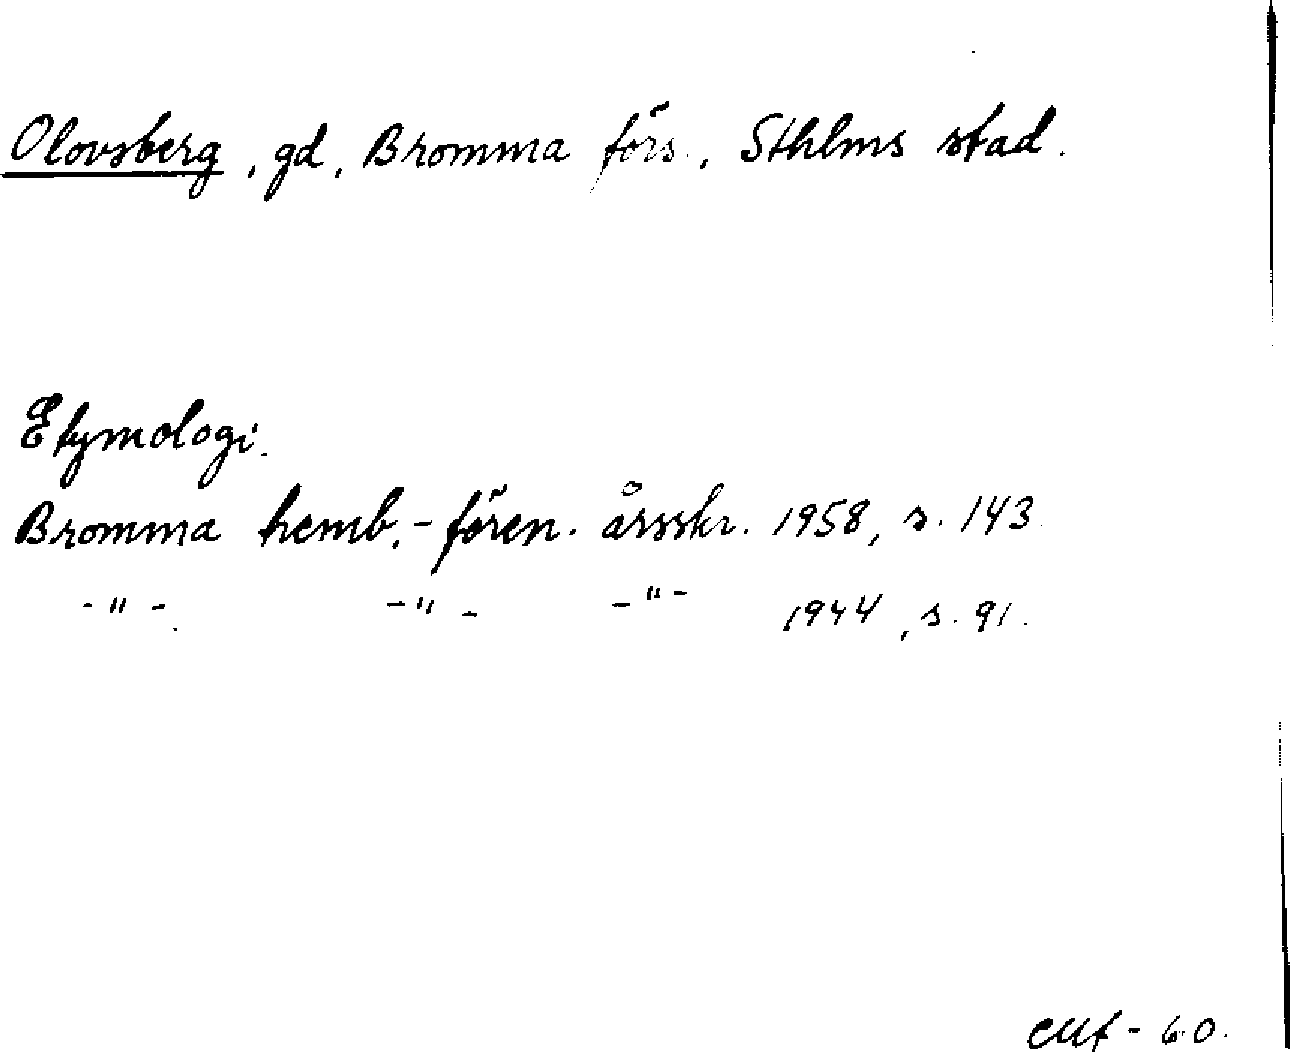 Olovsberg, gd, Bromma förs., Sthlms stad.
Etymologi.
Bromma hemb.-fören. årsskr. 1958, s. 143.
-"-. -"- -"- 1944, s. 91.
- 60.